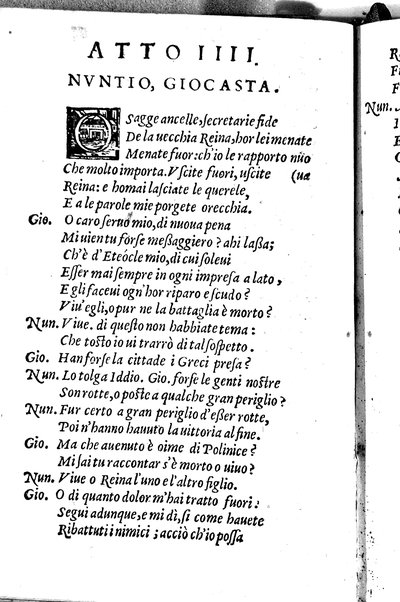 ATTO IIII.
NVNTIO, GIOCASTA.
O Sagge ancelle, ſecretarie fide
De la vecchia Reina, hor lei menate
Menate fuor: ch'io le rapporto nuo
Che molto importa. Vſcite fuori, uſcite (ua
Reina: e homai laſciate le querele,
E a le parole mie porgete orecchia.
Gio. O caro ſeruo mio, di nuoua pena
Mi uien tu forſe meßaggiero? ahi laßa;
Ch'è d'Eteòcle mio, di cui ſoleui
Eſſer mai ſempre in ogni impreſa a lato,
E gli faceui ogn'hor riparo e ſcudo?
Viu'egli, o pur ne la battaglia è morto?
Nun. Viue. di queſto non habbiate tema:
Che toſto io ui trarrò di tal ſoſpetto.
Gio. Han forſe la cittade i Greci preſa?
Nun. Lo tolga Iddio. Gio. forſe le genti noſtre
Son rotte, o poſte a qualche gran periglio?
Nun. Fur certo a gran periglio d'eßer rotte,
Poi n'hanno hauuto la uittoria al fine.
Gio. Ma che auenuto è oime di Polinice?
Mi ſai tu raccontar s'è morto o uiuo?
Nun. Viue o Reina l'uno e l'altro figlio.
Gio. O di quanto dolor m'hai tratto fuori:
Segui adunque, e mi dì, ſi come hauete
Ribattuti i nimici; acciò ch'io poſſa
R
Fu
F
Nun. V
I
Q